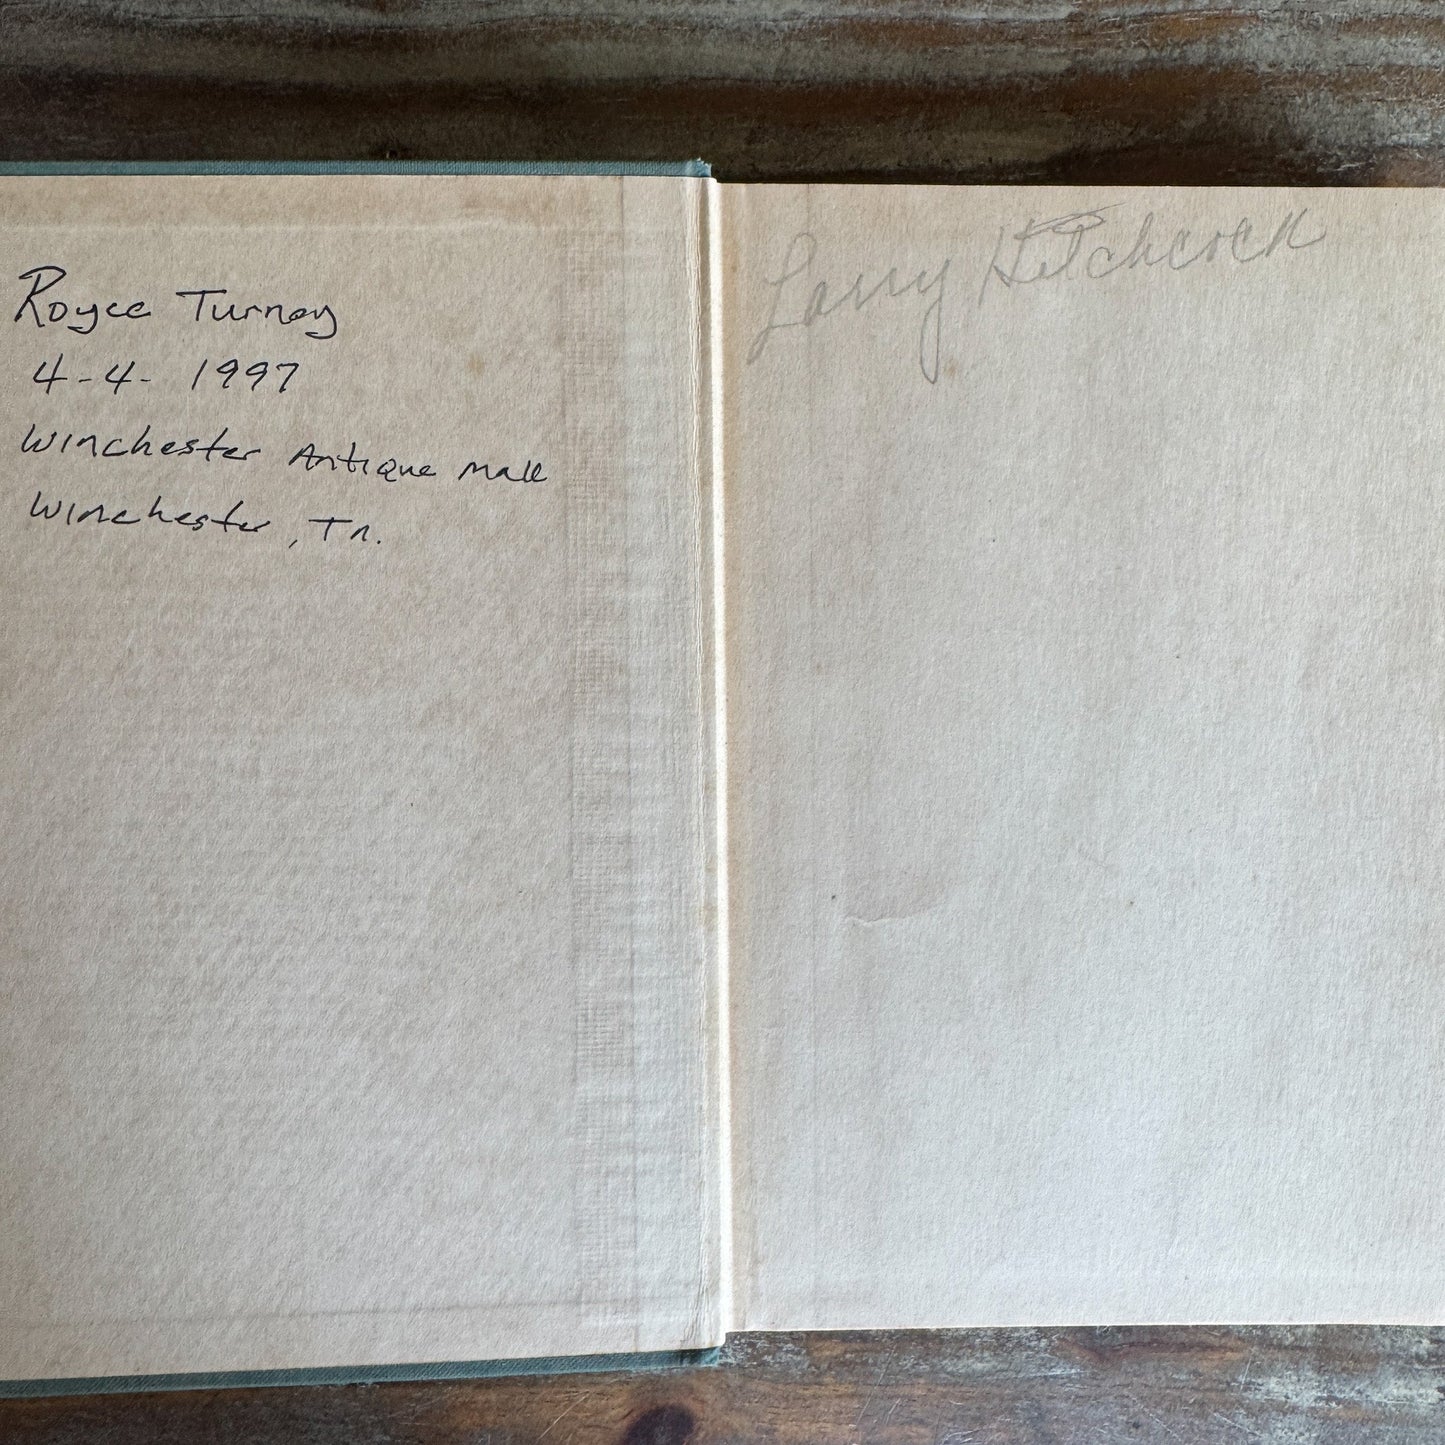 Royce Turney
4-4-1997
Winchester Antique Mall
Winchester, Tn.
Larry Hitchcock